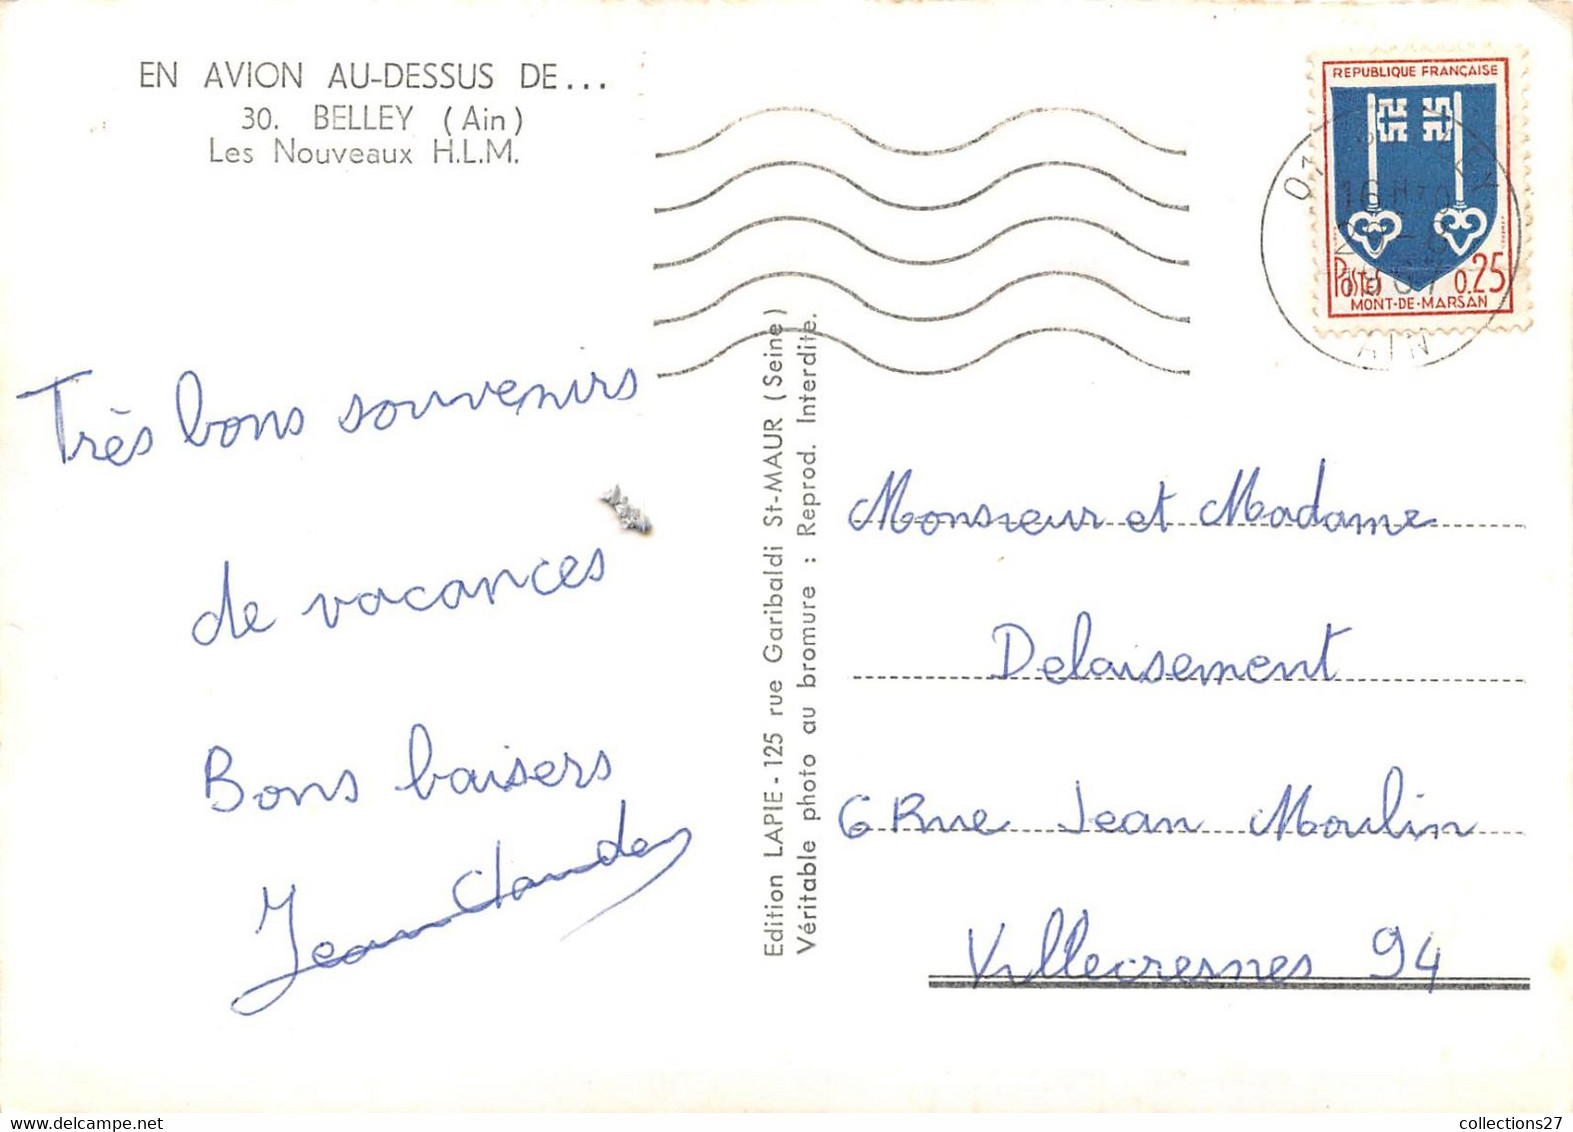 EN AVION AU-DESSUS DE...
30. BELLEY (Ain)
Les Nouveaux H.L.M.
REPUBLIQUE FRANÇAISE
16H30
1967
POSTES 0.25
MONT-DE-MARSAN
AIN
Très bons souvenirs
de vacances
Bons baisers
Jean Claude
Edition LAPIE - 125 rue Garibaldi St-MAUR (Seine)
Véritable photo au bromure : Reprod. Interdite.
Monsieur et Madame
Delaisement
6 Rue Jean Moulin
Villecresnes 94
collections27